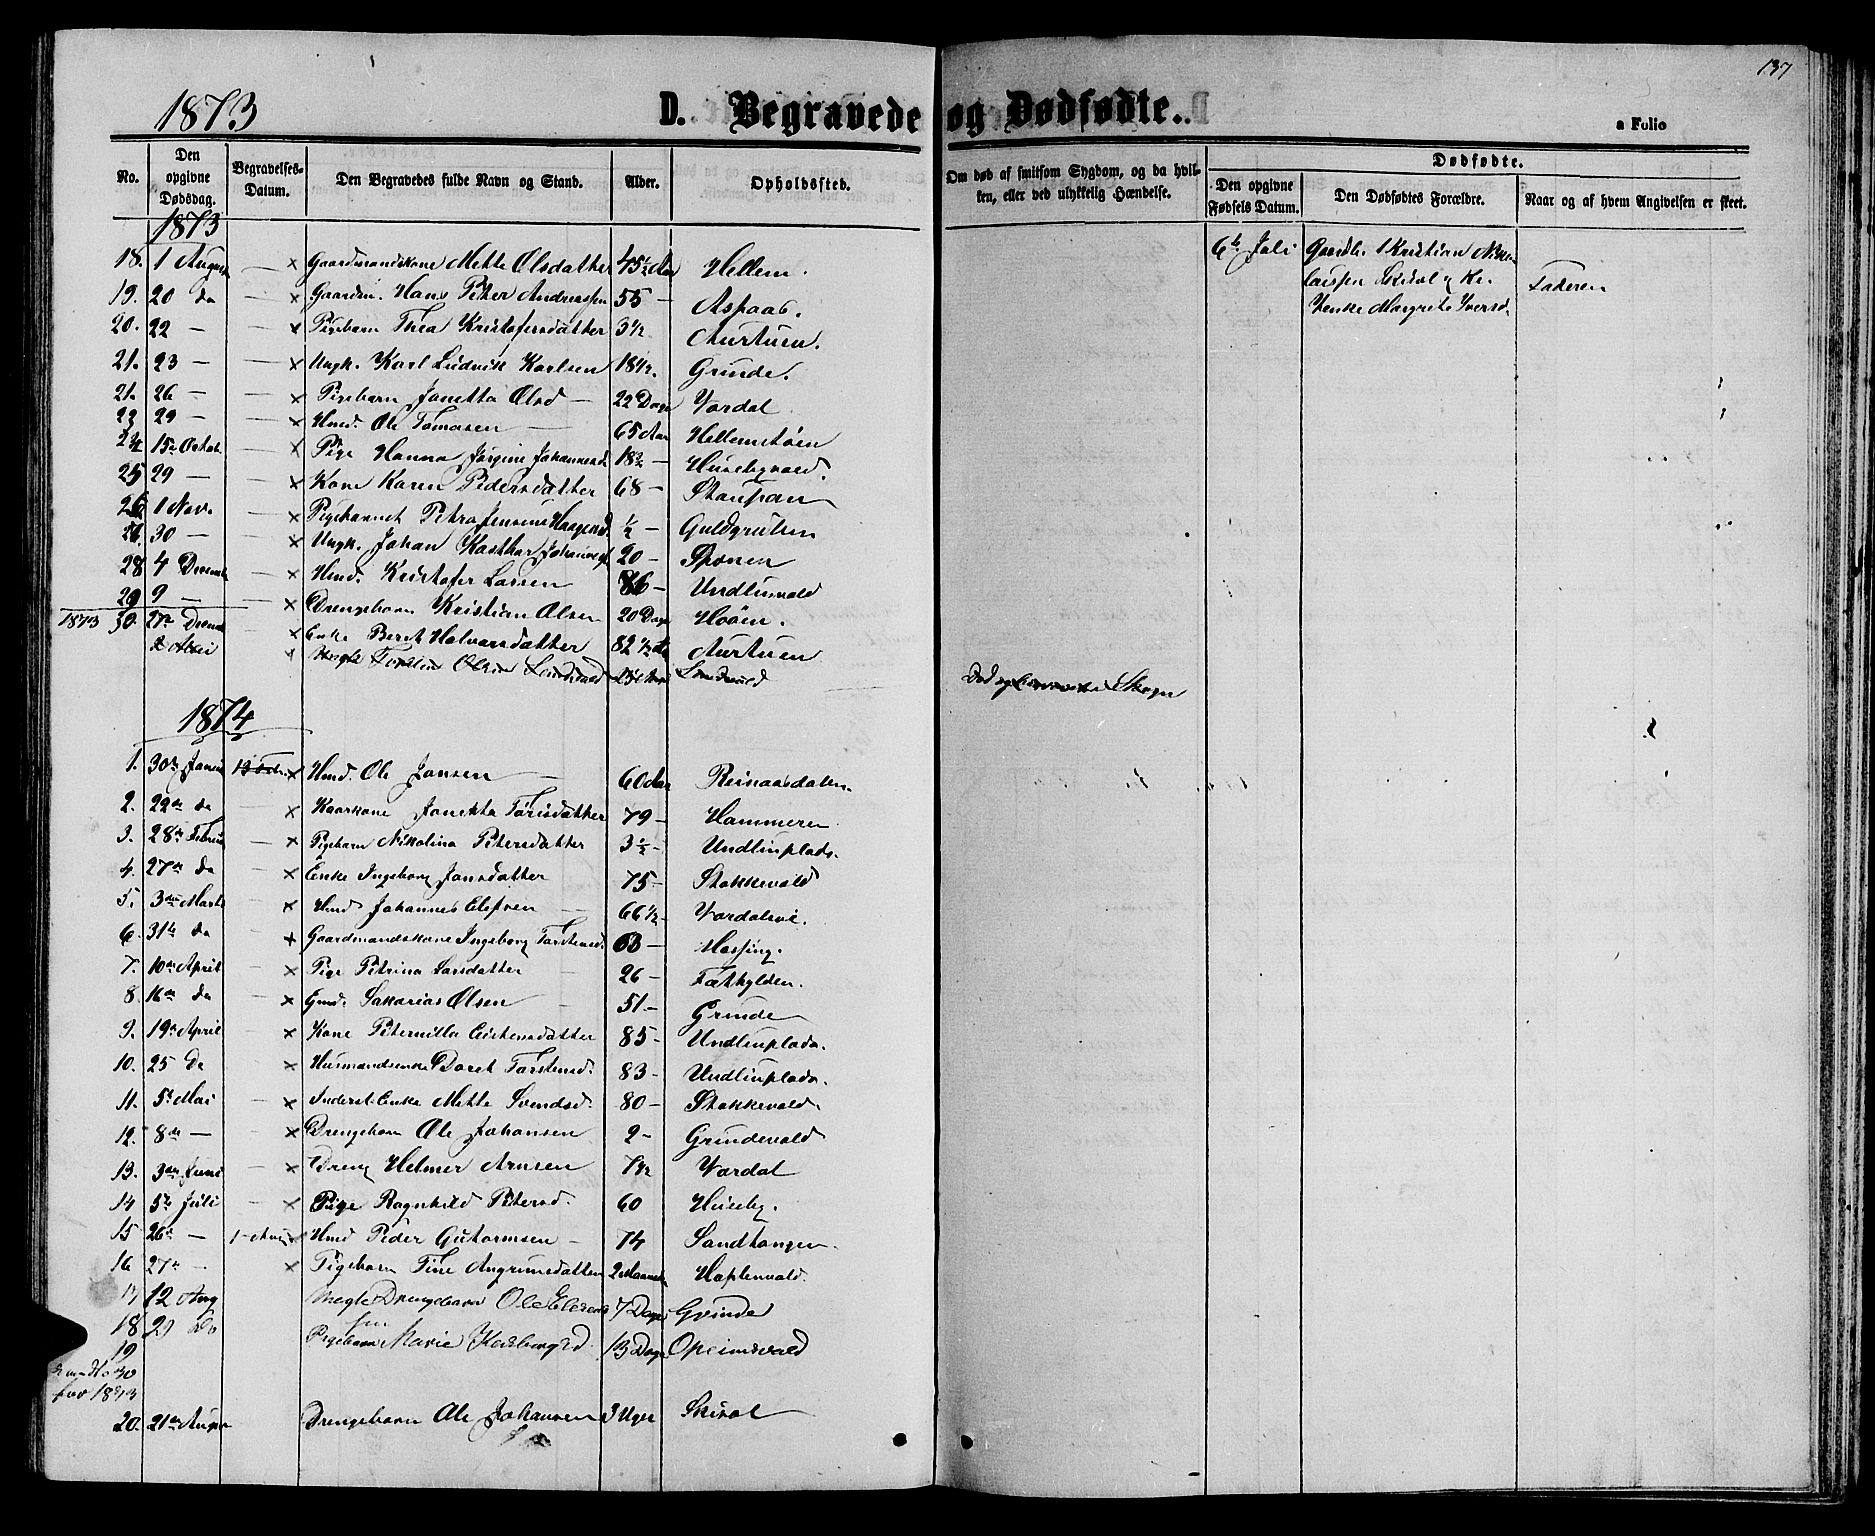 137
1873
D. Begravede og Dødfødte.
a Folio
No.
Den opgivne Dødsdag.
Begravelses-Datum.
Den Begravedes fulde Navn og Stand.
Alder.
Opholdssted.
Om død af smitsom Sygdom, og da hvilken, eller ved ulykkelig Hændelse.
Dødfødte.
Den opgivne Fødsels Datum.
Den Dødfødtes Forældre.
Naar og af hvem Angivelsen er skeet.
1873
18. 1 August — × Gaardmandskone Mette Olsdatter 45½ Aar Hellem.
19. 20 do — × Gaardm. Hans Peter Andreassen 55 — Aspaas.
20. 22 — — × Pigebarn Thea Kristofersdatter 3½ Aurtuen.
21. 23 — — × Ungk. Karl Ludvik Karlsen 18½. Grinde.
21. 26 — — × Pigebarn Janetta Olsd — 22 Dage Vordal
23 29 — — × Hmd. Ole Tomasen — 65 Aar Hellemstøen
24 15 Octob. — × Pige Hanna Jørgine Johannesd. 18 — Husebyvald.
25 29 — — × Kone Karen Pedersdatter 68 — Staupan
26 1 Nov. — × Pigebarnet Petra Jensine Haagensd. ½ — Guldgrutsen
30 — — × Ungk. Johan Johannes 20 — Sponen
28 4 Decemb — × Hmd. Kristofer Larsen 86 — Undlinvald
29 9 — — × Drengebarn Kristian Olsen 20 Dage Høøen.
1873 30. 27 Decemb — × Enke Beret Halvarsdatter 82½ Aa Aurtuen
Torsten Olsen
6te Juli Kristian
Margrete Iversd.
Faderen
1874
1. 30te Januar × Hmd. Ole Jonsen — 60 Aar Reinaasdalen.
2. 22de do — × Kaarkone Janekka Torisdatter 79 — Hammeren
3. 28de Februar — × Pigebarn Nikolina Petersdatter 3½ — Undlinplads.
4. 27de do — × Enke Ingeborg Jonsdatter 75 — Stokkevald
5. 3die Marts — × Hmd Johannes Elefsen — 66½ — Vordalsvi.
6. 31te do — × Gaardmandskone Ingeborg Torstensd. 63 — Mossing.
7. 10de April — × Pige Petrina Larsdatter — 26 — Fæthylden.
8. 16de do — × Gmd. Sakarias Olsen — 51 — Grinde
9. 19de April — × Kone Peternilla Eistensdatter 85 — Undlinplads.
10. 25 do — × Husmandsenke Beret Torstensd. 83 — Undlinplads.
11. 5te Mai — × Inderst. Enke Mette Svendsd. 80 — Stokkevald.
12. 8de — — × Drengebarn Ole Johansen 2 — Grindevald
13. 3die Juni — × Dreng Helmer Arnsen 7½ Vordal
14 5te Juli — × Pige Ragnhild Petersd. 60 Huseby.
15 26de — Hmd Peder Gutormsen — 74 Sandtangen.
16. 27de — × Pigebarn Tine Angrimsdatter 2 Maaneder Hoplenvald.
17 12 Aug Drengebarn Ole 7 Dage Grinde
18 29 do Pigebarn Marie 13 Dage Opeimsvald
19
No 30
for 1873
20. 21de August Drengebarn Ole Johansen 3 Uger Skirol